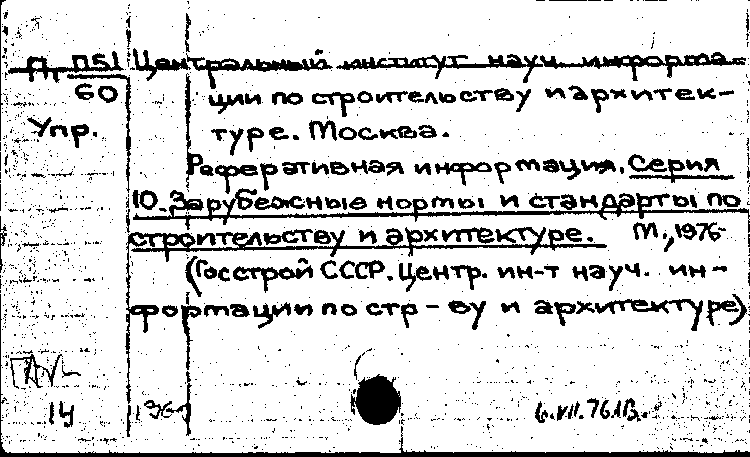 П, П51 Центральный институт науч. информа-
60 ции по строительству и архитек-
Упр. туре. Москва.
Реферативная информация. Серия
10. Зарубежные нормы и стандарты по
строительству и архитектуре. М., 1976-
(Госстрой СССР. Центр. ин-т науч. ин-
формации по стр-ву и архитектуре)
14 6.VII.76